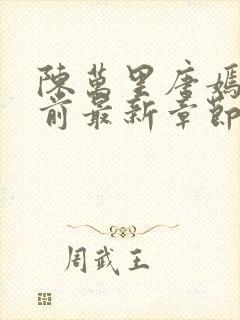 陳萬里唐嫣
前最新章節
周武王